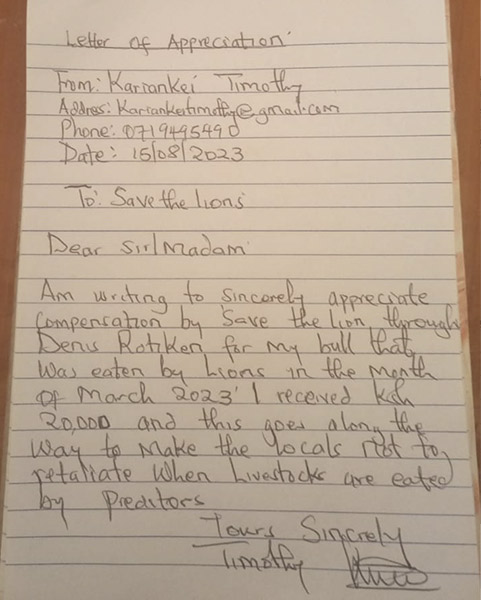 Letter of Appreciation
From: Kariankei Timothy
Address: Kariankeitimothy@gmail.com
Phone: 0719495490
Date: 15/08/2023
To: Save the lions
Dear Sir/Madam
Am writing to sincerely appreciate
compensation by Save the lion through
Denis Rotiken for my bull that
was eaten by Lions in the month
of March 2023' I received ksh
20,000 and this goes along the
way to make the locals not to
retaliate when Livestocks are eated
by Preditors
Yours Sincrely
Timothy